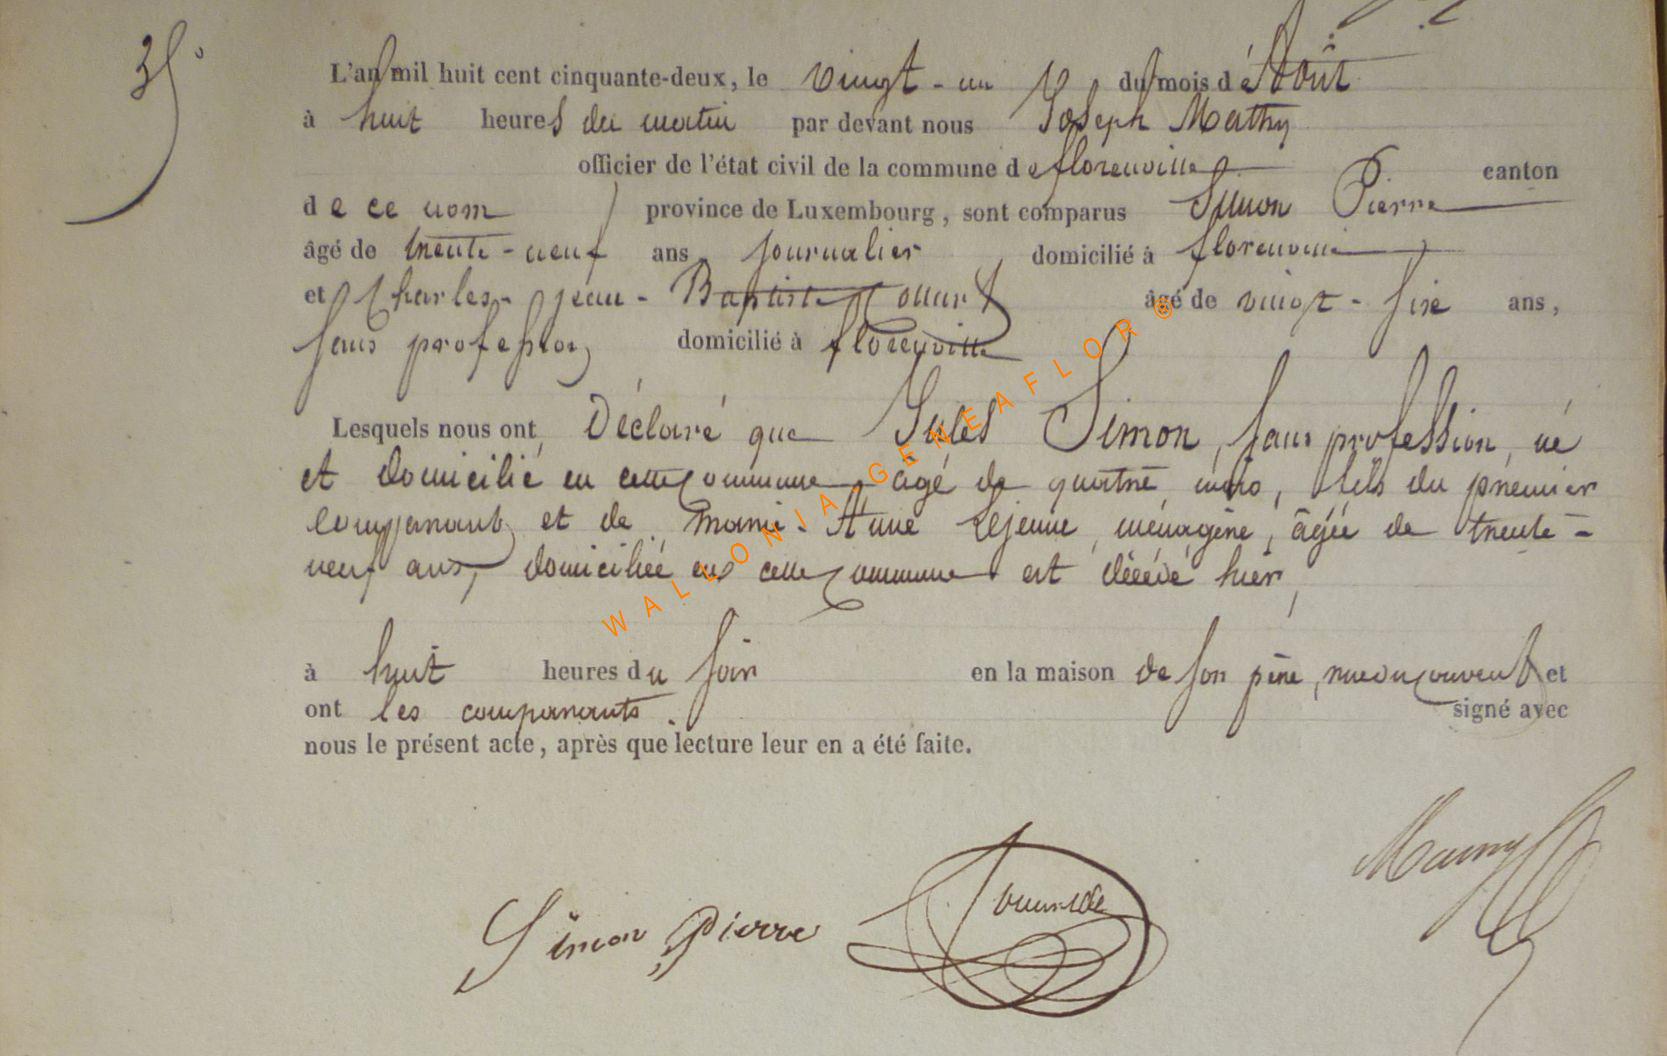 35°
L'an mil huit cent cinquante-deux, le vingt-un du mois d'Août
à huit heures du matin par devant nous Joseph Mathy
officier de l'état civil de la commune de florenville canton
de ce nom province de Luxembourg, sont comparus Simon Pierre
âgé de trente-neuf ans journalier domicilié à florenville
et Charles-jean-Baptiste âgé de vingt-six ans,
sans profession domicilié à florenville
Lesquels nous ont Déclaré que Jules Simon, sans profession, né
et domicilié en cette commune, agé de quatre mois, fils du premier
comparant, et de marie-Anne Lejeune, ménagère, âgée de trente-
neuf ans, domiciliée en cette commune est décédé hier,
à huit heures du soir en la maison de son père, rue du couvent et
ont les comparants signé avec
nous le présent acte, après que lecture leur en a été faite.
Simon Pierre
WALLONIA GENEAFLOR ©